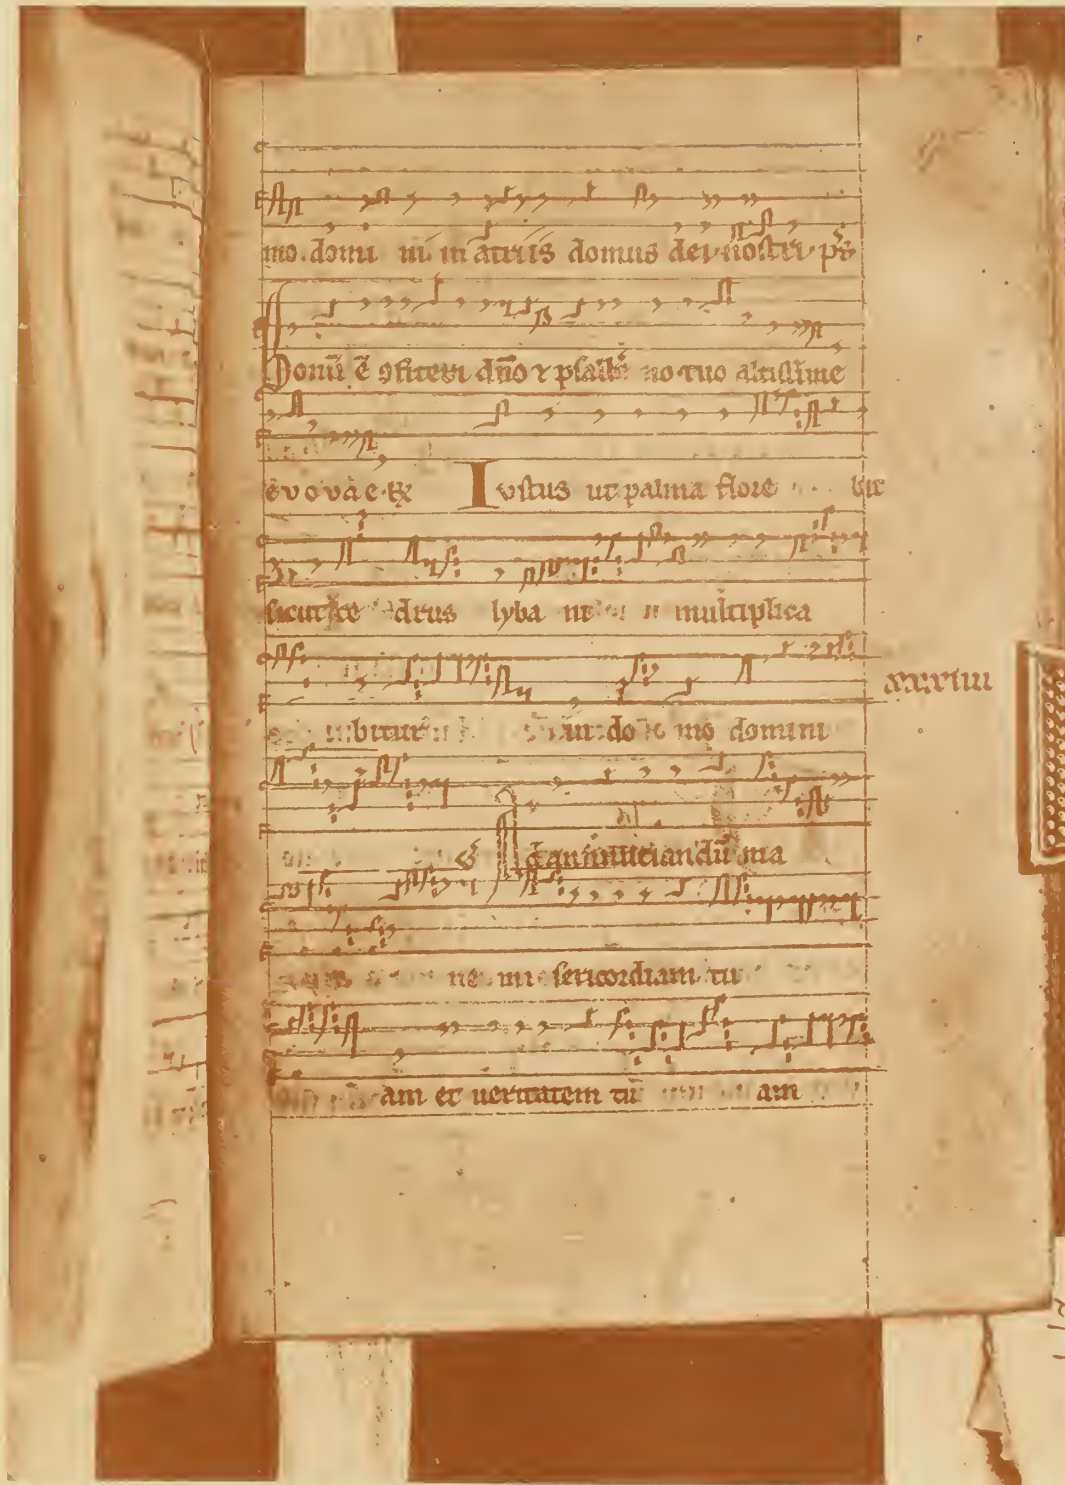 mo. domi ni in atriis domus dei nostri ps̄
Bonū ē ꝯfiteri dn̄o ⁊ psallē no tuo altissime
evovae. R̄ Iustus ut palma flore bit
sicut ce drus lyba ni multiplica
bitur in do mo domini
xxxviiii
℣ Ad annuntiandū ma
ne mi sericordiam tu
am et ueritatem tu am